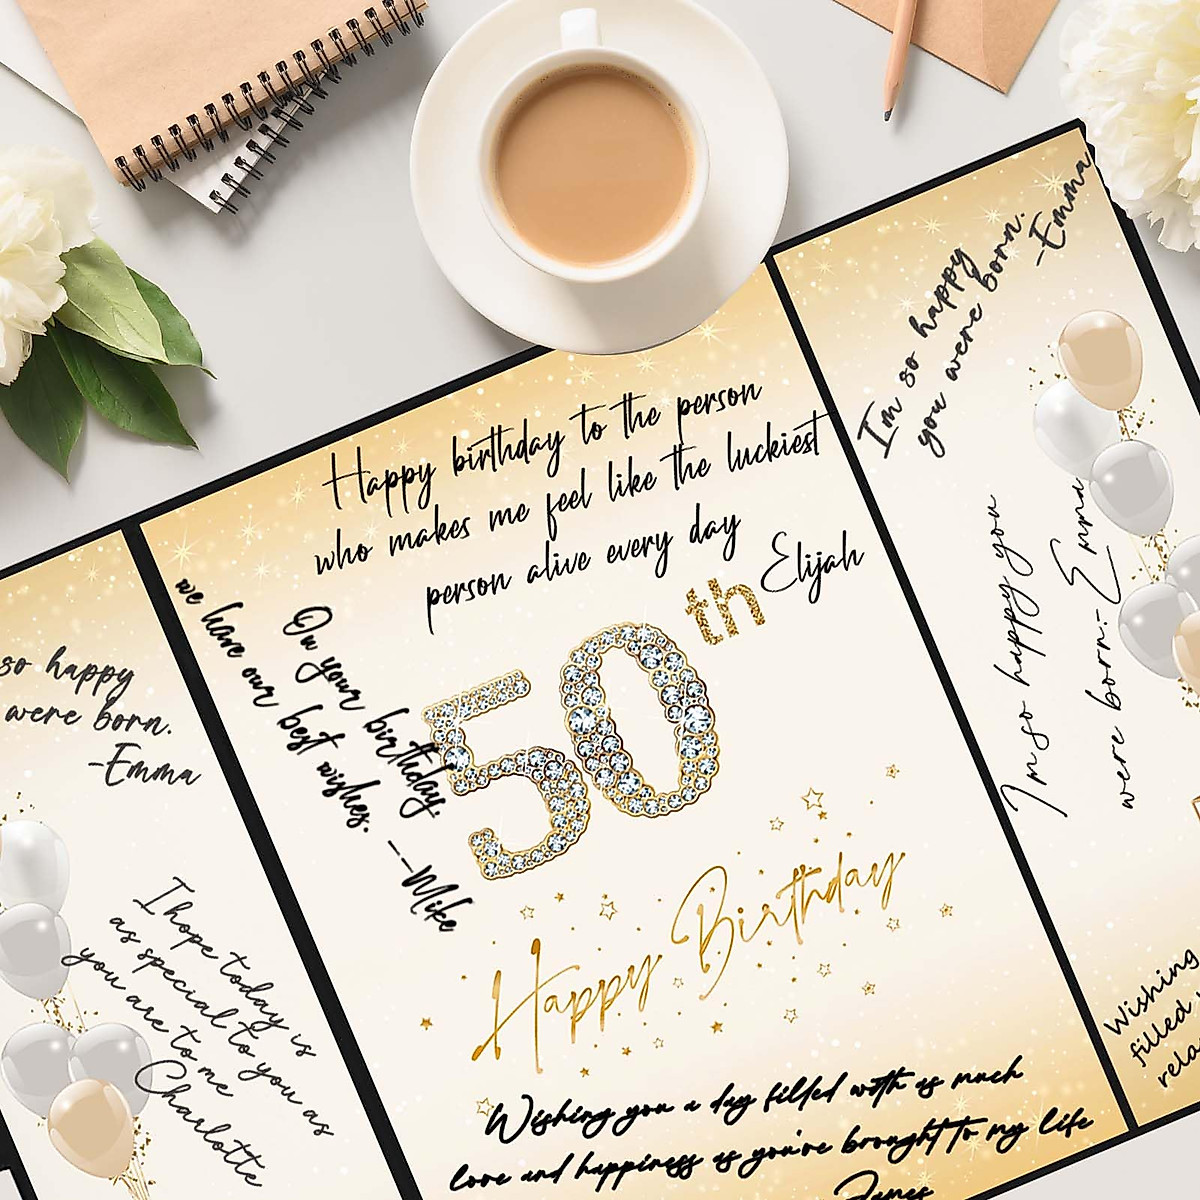 so happy
were born.
-Emma
I hope today is
as special to you as
you are to me
Charlotte
Happy birthday to the person
who makes me feel like the luckiest
person alive every day
Elijah
On your birthday.
we have our best wishes. --Mike
50th
Happy Birthday
Wishing you a day filled with as much
love and happiness as you've brought to my life
James
I'm so happy
you were born.
-Emma
I'm so happy you
were born.-Emma
Wishing
filled